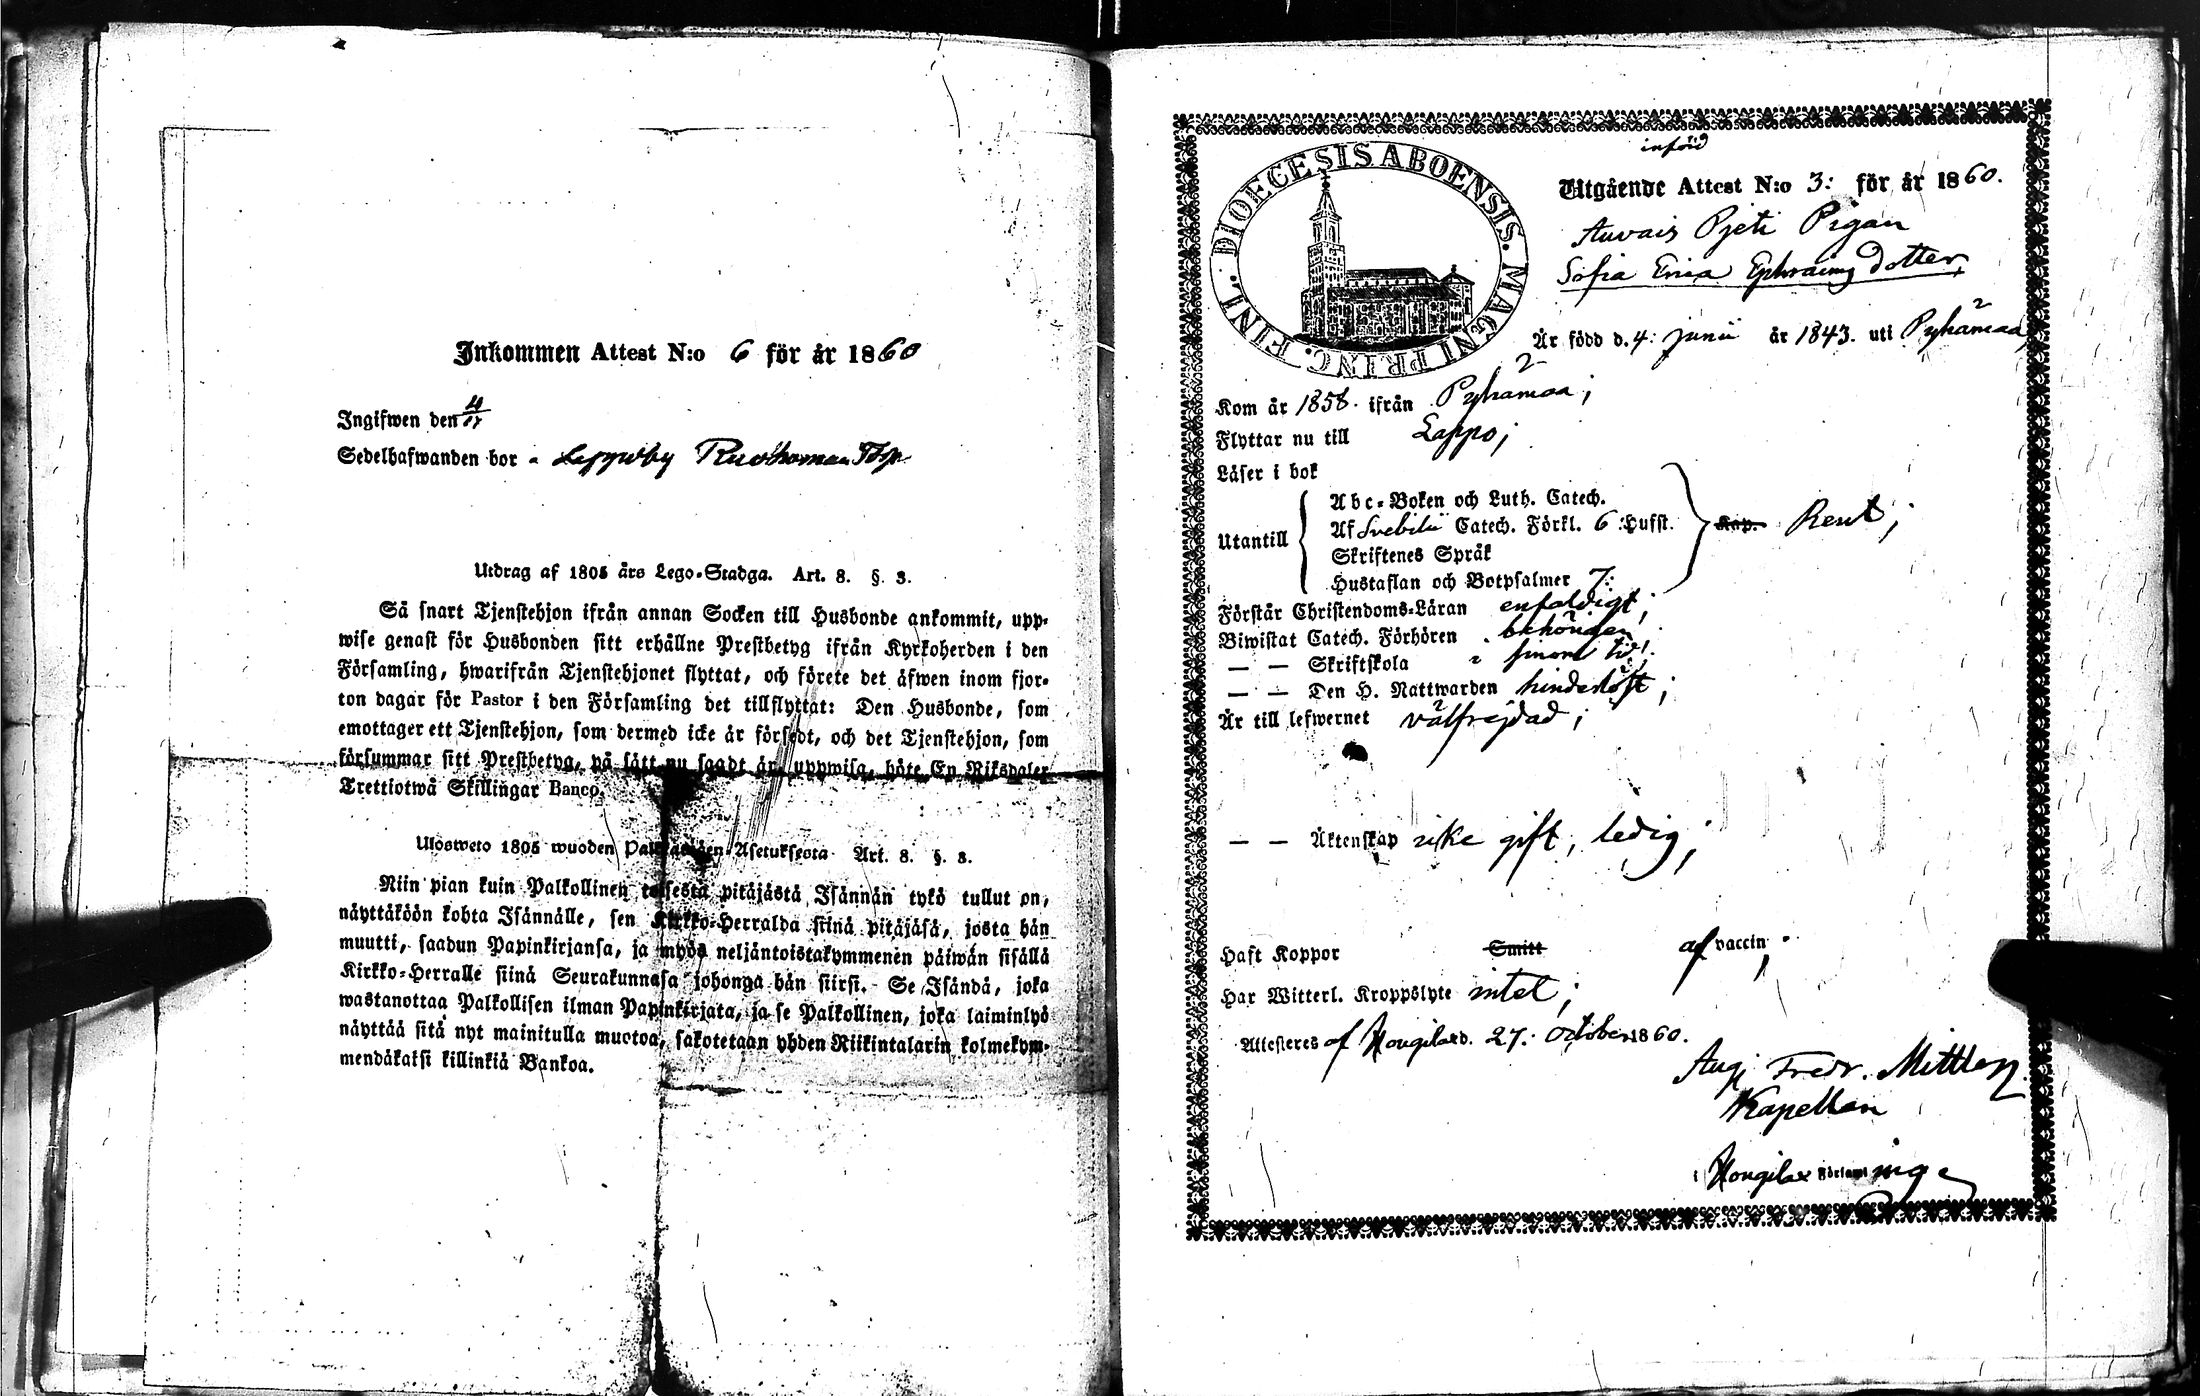 Inkommen Attest N:o 6 för år 1860
Ingifwen den 4/11
Sedelhafwanden bor
Utdrag af 1805 års Lego-Stadga. Art. 8. §. 3.
Så snart Tjenstehjon ifrån annan Socken till Husbonde ankommit, upp-
wise genast för Husbonden sitt erhållne Prestbetyg ifrån Kyrkoherden i den
Församling, hwarifrån Tjenstehjonet flyttat, och förete det äfwen inom fjor-
ton dagar för Pastor i den Församling det tillflyttat: Den Husbonde, som
emottager ett Tjenstehjon, som dermed icke är försedt, och det Tjenstehjon, som
försummar sitt Prestbetyg, på sätt nu sagdt är, uppwisa, böte En Riksdaler
Trettiotwå Skillingar Banco.
Ulosweto 1805 wuoden Palkollisten Asetuksesta Art. 8. §. 3.
Niin pian kuin Palkollinen toisesta pitäjästä Isännän tykö tullut on,
näyttäköön kohta Isännälle, sen Kirkko-Herralda siinä pitäjäsä, josta hän
muutti, saadun Papinkirjansa, ja myös neljäntoistakymmenen päiwän sisällä
Kirkko-Herralle siinä Seurakunnasa johonga hän siirsi. Se Isändä, joka
wastanottaa Palkollisen ilman Papinkirjata, ja se Palkollinen, joka laiminlyö
näyttää sitä nyt mainitulla muotoa, sakotetaan yhden Riikintalarin kolmekym-
mendäkaksi killinkiä Bankoa.
DIOECESIS ABOENSIS. MAGNI PRINC. FINL.
införd
Utgående Attest N:o 3: för år 1860.
Auvais Pjeti Pigan
Sofia Erica Ephraims dotter
Är född d. 4: junii år 1843. uti Pyhämaa
Kom år 1858. ifrån Pyhämaa;
Flyttar nu till Lappo;
Läser i bok
Utantill
Abc-Boken och Luth. Catech.
Af Svebilii Catech. Förkl. 6 :Hufst.
Skriftenes Språk
Hustaflan och Botpsalmer 7:
Kap. Rent;
Förstår Christendoms-Läran enfaldigt;
Biwistat Catech. Förhören behörigen
— — Skriftskola sinom tid;
— — Den H. Nattwarden hinderlöst;
Är till lefwernet välfrejdad;
— — Äktenskap icke gift, ledig;
Haft Koppor Smitt af vaccin;
Har Witterl. Kroppslyte intet;
Attesteras af Hongilax d. 27. October 1860.
Aug. Fredr. Mittler
Kapellan
i Hongilax Församling